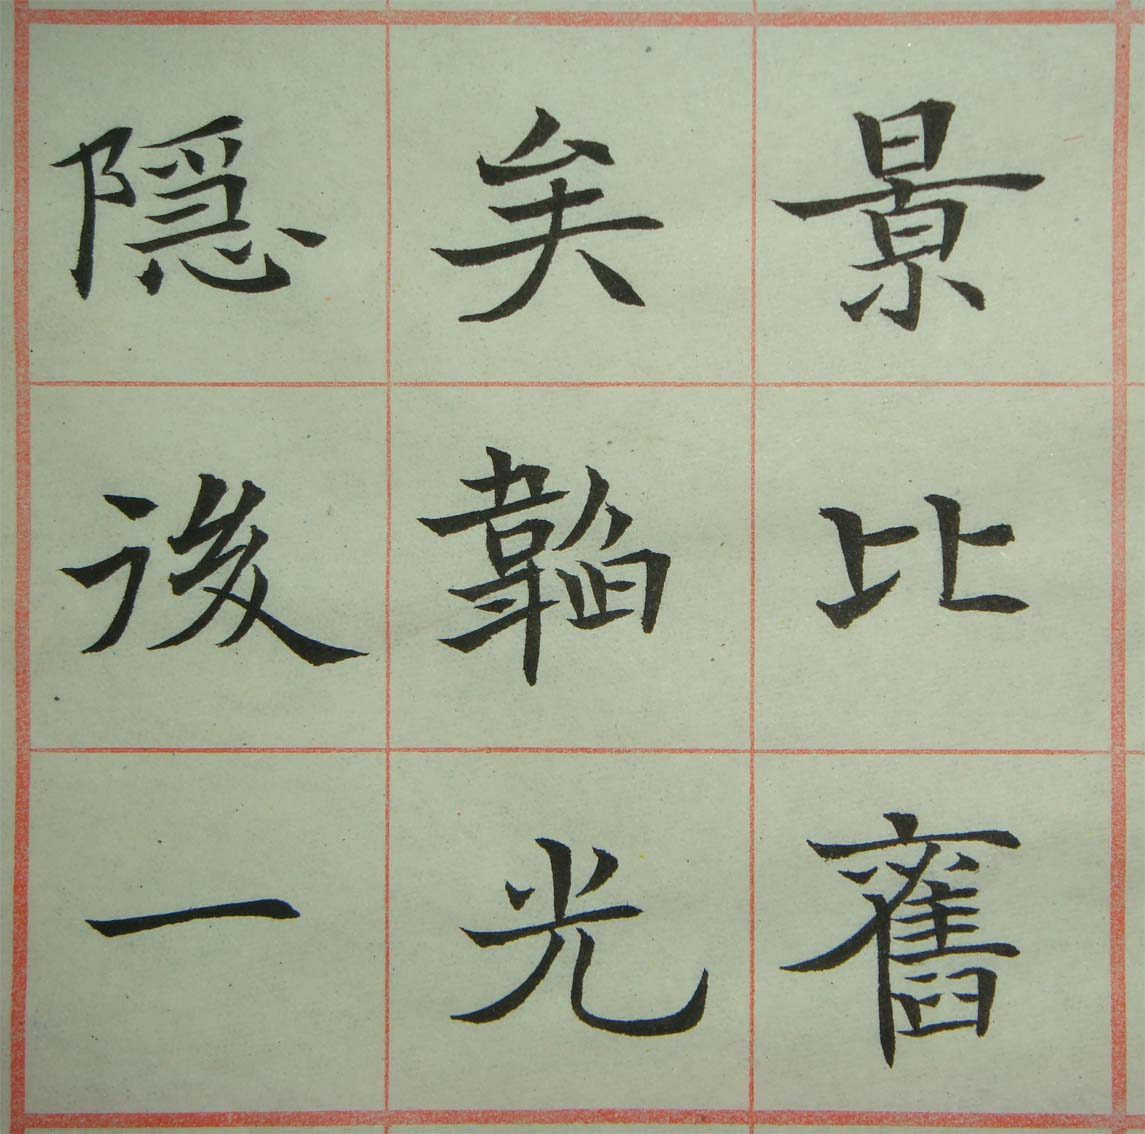 景比舊
矣韜光
隱後一